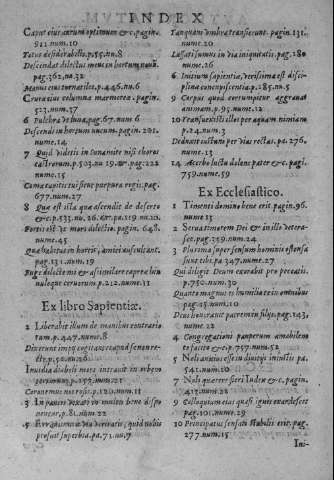 INDEX
Caput eius aurum optimum &c. pagin.
911 num. 10
Totus desiderabilis. p. 55. nu. 8
Descendat dilectus meus in hortum
pag. 362. nu. 32
Manus eius tornatiles. p. 446. nu. 6
Crura eius columnæ marmoreæ. pagin.
523. num. 37
6 Pulchra pag. 67. num. 6
Descendi in hortum nucum. pagin. 201.
num. 14
7 Quid videtis in Sunamite nisi choros
castrorum. p. 503. nu 19. pag. 222
num. 15
Caput tuum pag.
677. num. 27
8 Quæ est illa quæ ascendit de deserto
&c. p. 533. nu. 26. & pa. 319 nu. 20
Fortis est ut mors dilectio. pagin. 648.
num. 45
Quæ habitas in hortis, amici auscultant.
pag. 131. num. 19
Fuge dilecte mi & assimilare capreæ hin
nuloque cervorum p. 212. num. 31
Ex libro Sapientiæ.
2 Liberabit illum de manibus contraria
rum. p. 447. num. 8
p. 50. nu. 26
Invidia diaboli mors intravit in orbem
terrarum p. 157. num. 27
Coronemus nos rosis. p. 120. num. 11
3 In paucis vexati in multis bene dispo
nentur. p. 81. num. 22
5 Erravimus a via veritatis, quid nobis
profuit superbia. pa. 71. nu. 7
Tanquam umbra transierunt. pagin. 131.
num. 20
Lassati sumus in via iniquitatis. pag. 280
num. 26
6 Initium sapientiæ, verissima est disci
plinæ concupiscentia p. 285. nu. 5
9 Corpus quod corrumpitur aggravat
animam. p. 95. num. 12
10 Transvexisti illos per aquam nimiam
p. 24. num. 3
Deduxit iustum per vias rectas. pa. 276.
num. 13
14 Acerbo luctu dolens pater &c. pagi.
759. num. 59
Ex Ecclesiastico.
1 Timenti dominum bene erit. pagin. 96.
num. 13
2 Serva timorem Dei & in illo vetera-
sce. pag. 359. num. 24
3 Plurima super sensum hominis ostensa
sunt tibi. pa 347. num. 27
Qui diligit Deum exorabit pro peccatis.
p. 750. num. 30
Quanto magnus es humilia te in omnibus
pag. 10. num. 29
Deus honoravit patrem in filijs. pag. 143.
num. 22
4 Congregationi pauperum amabilem
te facito &c. p. 757. num. 52
5 Noli anxius esse in divitijs iniustis pa.
541. num. 20
7 Noli quærere fieri Iudex &c. pagin.
412. num. 22
9 Colloquium eius quasi ignis exardescit
pag. 101. num. 29
10 Principatus sensati stabilis erit. pag.
277. num. 15
Ini-